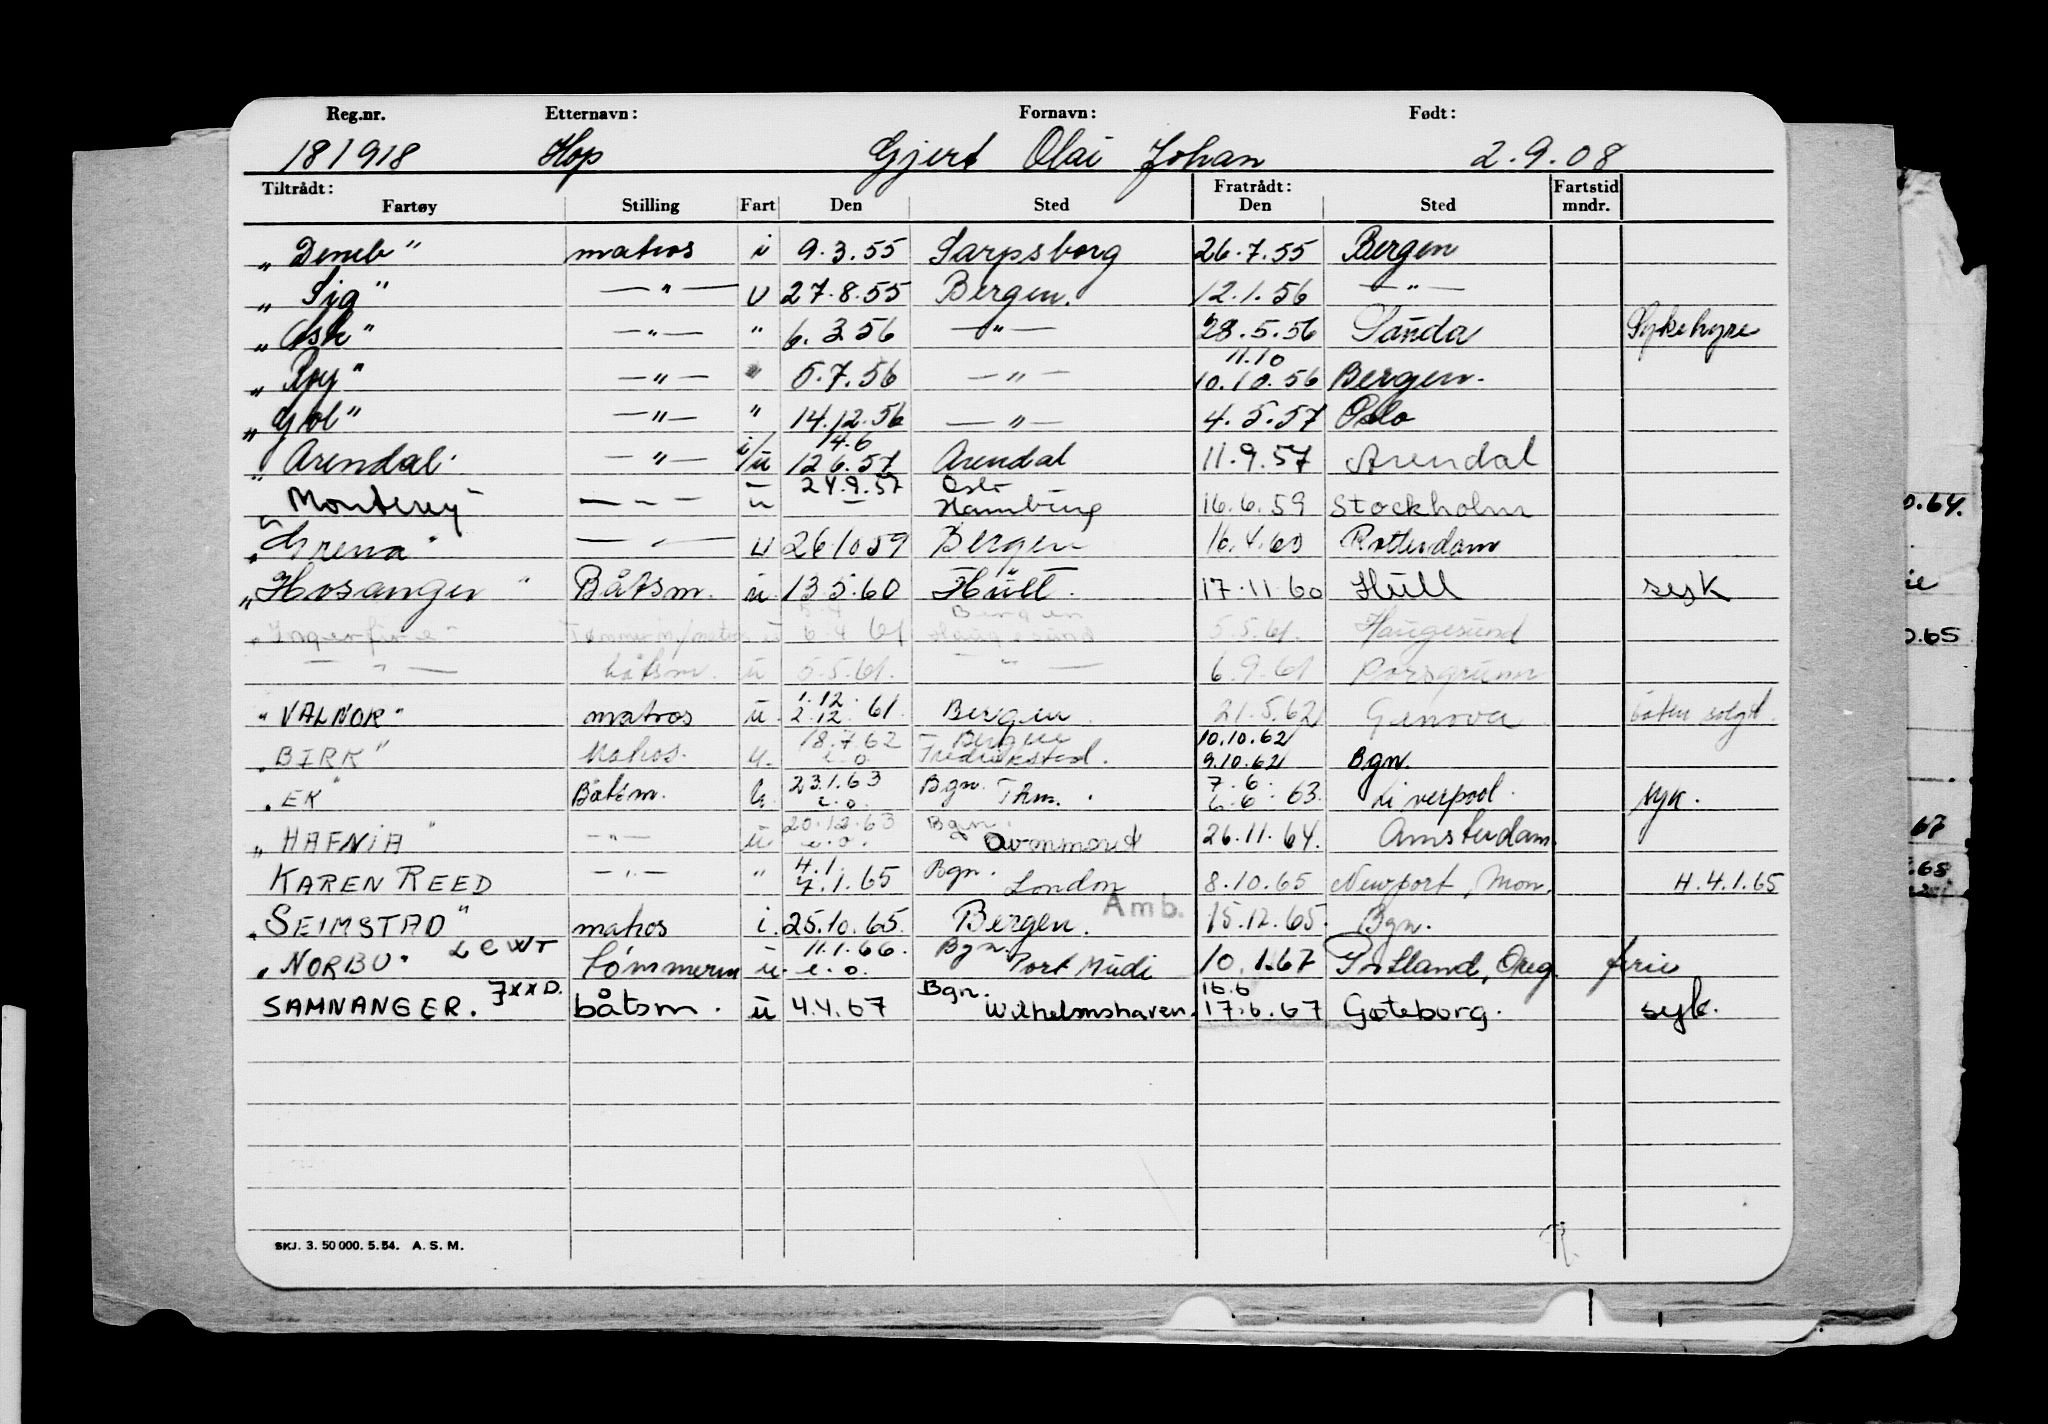 Reg.nr. Etternavn: Fornavn: Født:
181918 Hop Gjert Olai Johan 2.9.08
Tiltrådt: Fratrådt: Fartstid
Fartøy Stilling Fart Den Sted Den Sted mndr.
„Deneb" matros i 9.3.55 Sarpsborg 26.7.55 Bergen
„Sig" — " — u 27.8.55 Bergen. 12.1.56 — " —
„Ask" — " — " 6.3.56 — " — 28.5.56 Sauda Sykehyre
11.10
„Roy" — " — " 5.7.56 — " — 10.10.56 Bergen.
„Gol" — " — " 14.12.56 — " — 4.5.57 Oslo
14.6
„Arendal" — " — i/u 12.6.57 Arendal 11.9.57 Arendal
24.9.57 Oslo
„Monterey" — " — u — Hamburg 16.6.59 Stockholm
„Grena" — " — u 26.10.59 Bergen 16.4.60 Rotterdam
„Hosanger" Båtsm. u. 13.5.60 Hull. 17.11.60 Hull syk
5.4 Bergen
„Ingerfire" Tømmerm/matros u 6.4.61 Haugesund 5.5.61. Haugesund
— " — båtsm. u 5.5.61. — " — 6.9.61 Porsgrunn
1.12
"VALNOR" matros u. 2.12.61. Bergen 21.5.62 Genova båten solgt
18.7.62 Bergen 10.10.62
„BIRK" Matros. u. e.o. Fredrikstad. 9.10.62 Bgn.
23.1.63 Bgn. 7.6
„EK" Båtsm. u. e.o. Thm. 6.6.63. Liverpool. syk.
20.12.63 Bgn.
„HAFNIA" — " — u. e.o. Avonmouth 26.11.64. Amsterdam.
4.1. Bgn.
KAREN REED — " — " 7.1.65 London 8.10.65 Newport, Mon. H.4.1.65
Amb.
„SEIMSTAD" matros i. 25.10.65. Bergen. 15.12.65. Bgn.
LCWT 11.1.66. Bgn.
„NORBU" tømmerm u. e.o. Port Mudi 10.1.67 Portland, Oreg. ferie
JXXD. Bgn. 16.6
SAMNANGER. båtsm. u 4.4.67 Wilhelmshaven. 17.6.67 Gøteborg. syk.
SKJ. 3. 50 000. 5. 54. A. S. M.
0.64.
0.65
67
.68